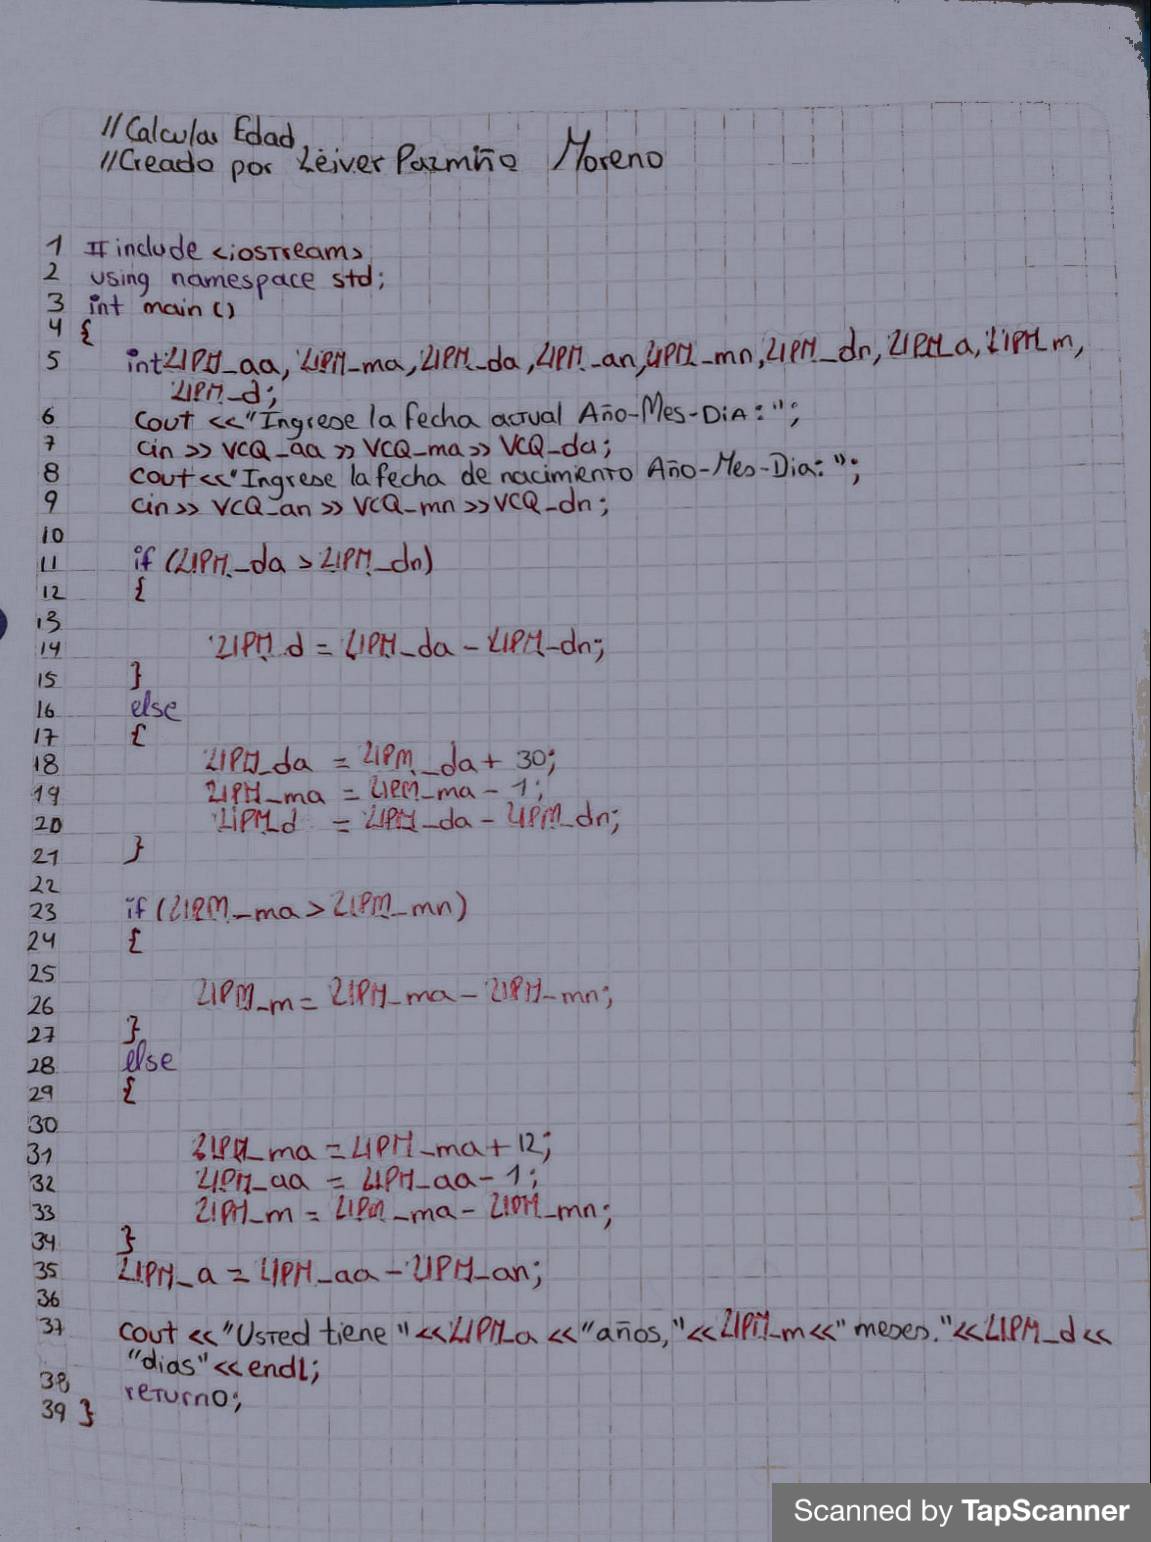 //Calcular Edad
//Creado por Leiver Pazmiño Moreno
1 #include <iostream>
2 using namespace std;
3 int main ()
4 {
5 int LIPM_aa, LIPM_ma, LIPM_da, LIPM_an, LIPM_mn, LIPM_dn, LIPM_a, LIPM_m,
LIPM_d;
6 cout <<"Ingrese la fecha actual Año-Mes-Dia: ";
7 cin >> VCQ_aa >> VCQ_ma >> VCQ_da;
8 cout<<"Ingrese la fecha de nacimiento Año-Mes-Dia: ";
9 cin >> VCQ_an >> VCQ_mn >> VCQ_dn;
10
11 if (LIPM_da > LIPM_dn)
12 {
13
14 LIPM_d = LIPM_da - LIPM_dn;
15 }
16 else
17 {
18 LIPM_da = LIPM_da + 30;
19 LIPM_ma = LIPM_ma - 1;
20 LIPM_d = LIPM_da - LIPM_dn;
21 }
22
23 if (LIPM_ma > LIPM_mn)
24 {
25
26 LIPM_m = LIPM_ma - LIPM_mn;
27 }
28 else
29 {
30
31 LIPM_ma = LIPM_ma + 12;
32 LIPM_aa = LIPM_aa - 1;
33 LIPM_m = LIPM_ma - LIPM_mn;
34 }
35 LIPM_a = LIPM_aa - LIPM_an;
36
37 cout <<"Usted tiene "<<LIPM_a <<"años, "<<LIPM_m<<" meses. "<<LIPM_d <<
"dias"<<endl;
38 return 0;
39 }
Scanned by TapScanner